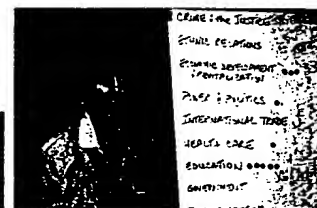 CRIME & the JUSTICE
ETHNIC RELATIONS
ECONOMIC DEVELOPMENT
& REVITALIZATION
POWER & POLITICS
INTERNATIONAL TRADE
HEALTH CARE
EDUCATION
GOVERNMENT